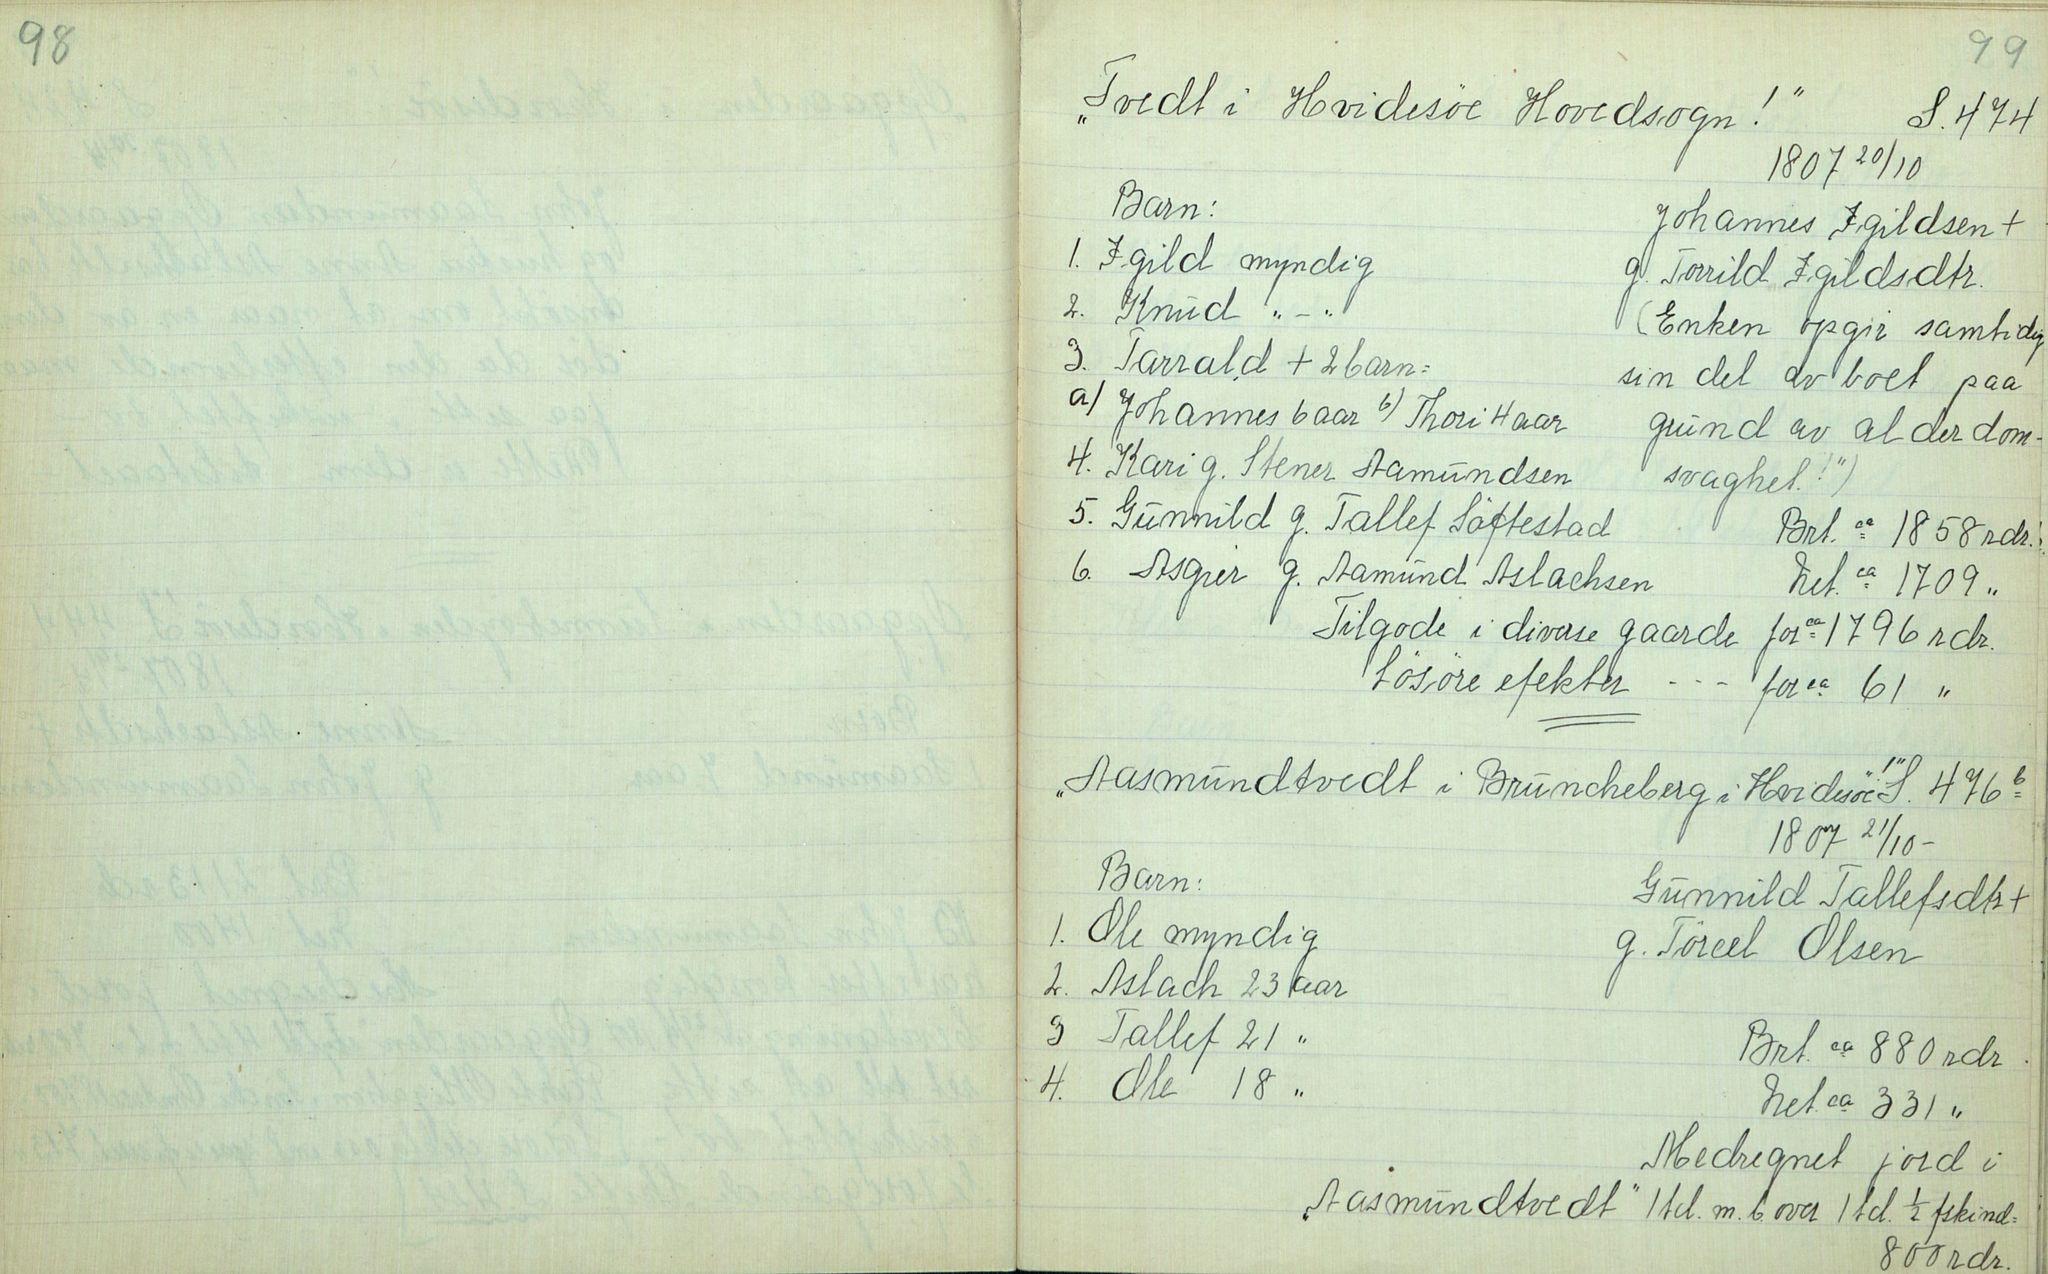 98
99
„Tvedt i Hvidesöe Hovedsogn!" S. 474
1807 20/10
Barn:
Johannes Igildsen +
1. Igild myndig
g. Torrild Igildsdtr.
2. Knud " - "
(Enken opgir samtidig
3. Tarrald + 2 barn:
sin del av boet paa
a) Johannes 6 aar b) Thori 4 aar
grund av alderdom-
4. Kari g. Stener Aamundsen
svaghet!")
5. Gunnild g. Tallef Löftestad
Brt. ca 1858 rdr.
6. Asgier g. Aamund Aslachsen
Net. ca 1709 "
Tilgode i diverse gaarde for ca 1796 rdr.
Lösöre efekter - - - for ca 61 "
„Aasmundtvedt i Bruncheberg i Hvidesöe!" S. 476 b
1807 21/10 -
Barn:
Gunnild Tallefsdtr +
1. Ole myndig
g. Törcel Olsen
2. Aslach 23 aar
3 Tallef 21 "
Brt. ca 880 rdr.
4. Ole 18 "
Net. ca 331 "
Medregnet jord i
„Aasmundtvedt" 1 td. m. b. over 1 td. 1/2 fskind=
800 rdr.